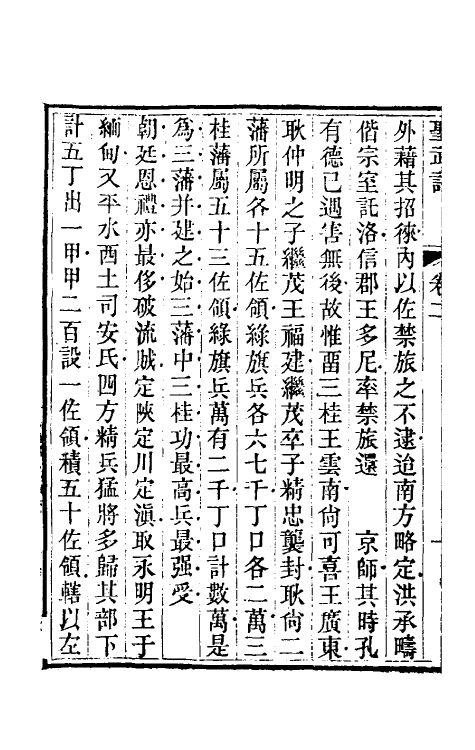 聖武記 卷二
外藉其招徠內以佐禁旅之不逮迨南方略定洪承疇
偕宗室託洛信郡王多尼率禁旅還 京師其時孔
有德已遇害無後故惟畱三桂王雲南尙可喜王廣東
耿仲明之子繼茂王福建繼茂卒子精忠襲封耿尙二
藩所屬各十五佐領綠旗兵各六七千丁口各二萬三
桂藩屬五十三佐領綠旗兵萬有二千丁口計數萬是
爲三藩并建之始三藩中三桂功最高兵最强受
朝廷恩禮亦最侈破流賊定陝定川定滇取永明王于
緬甸又平水西土司安氏四方精兵猛將多歸其部下
計五丁出一甲甲二百設一佐領積五十佐領轄以左